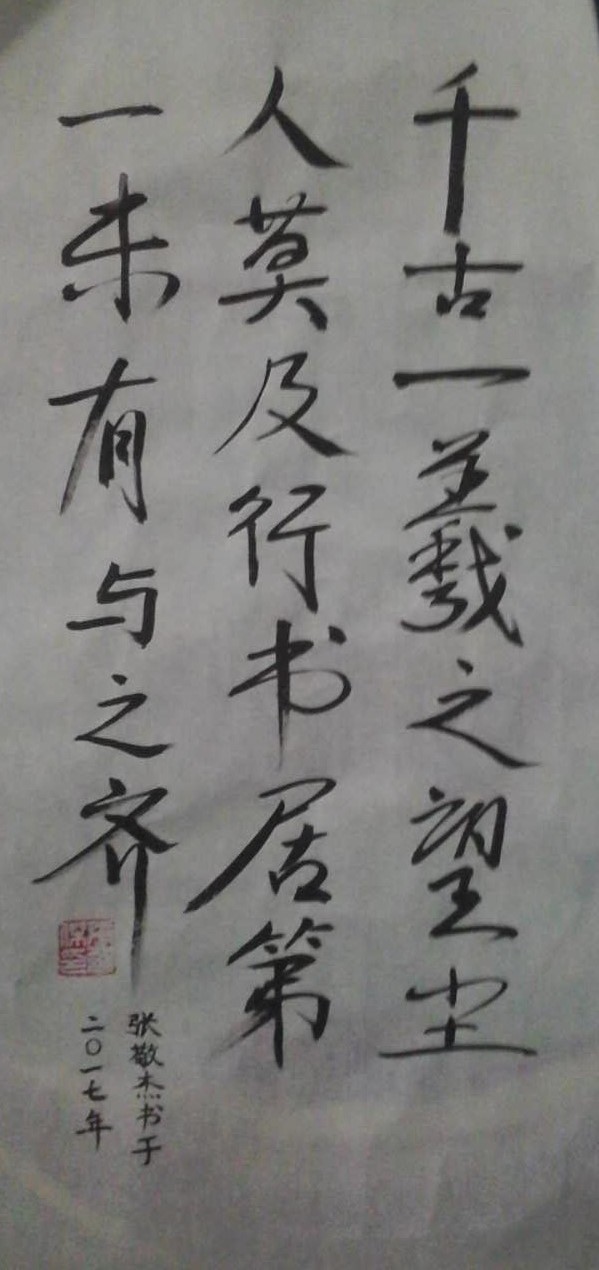 千古一羲之望尘
人莫及行书居第
一未有与之齐
张敬杰书于
二〇一七年